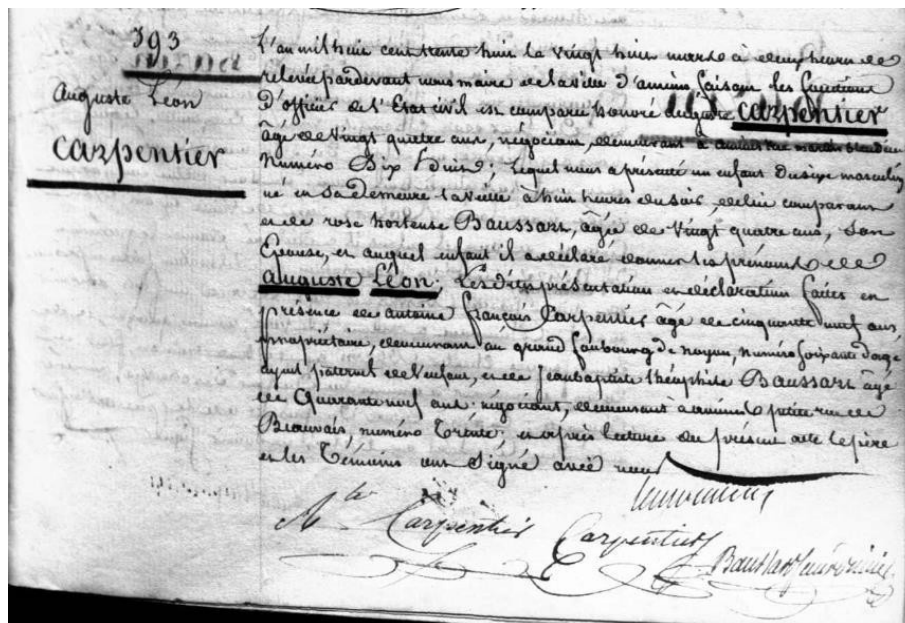 393
Auguste Léon
Carpentier
L'an mil huit cent trente huit le vingt huit mars à deux heures de
relevée pardevant nous maire de la ville d'amiens faisant les fonctions
D'officier de l'Etat civil est comparu honoré auguste Carpentier
âgé de Vingt quatre ans, négociant, demeurant à amiens rue martin
Numéro Dix huit, lequel nous a présenté un enfant Du sexe masculin
né en Sa demeure la veille à huit heures du soir, de lui comparant
et de rose hortense Baussart, âgée de Vingt quatre ans, Son
Epouse, et auquel enfant il a déclaré donner les prénoms de
auguste Léon; Lesdites présentation et déclaration faites en
présence de antoine françois Carpentier âgé de cinquante neuf ans
propriétaire, demeurant au grand faubourg de noyon, numéro soixante
ayeul paternel de l'enfant, et de Jean baptiste théophile Baussart âgé
de Quarante neuf ans négociant, demeurant à amiens petite rue de
Beauvais numéro Trente; et après lecture du présent acte le père
et les Témoins ont Signé avec nous
Ate Carpentier Carpentier
Baussart